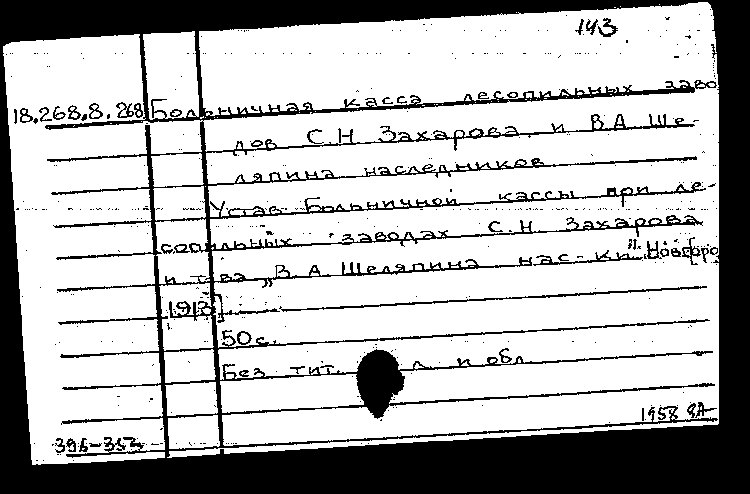 143
18.268.8.268 Больничная касса лесопильных заво
дов С.Н. Захарова и В.А. Ше-
ляпина наследников.
Устав Больничной кассы при ле-
сопильных заводах С.Н. Захарова
и т-ва „В.А. Шеляпина нас-ки".
1913].
50 с.
Без тит. л. и обл.
1958